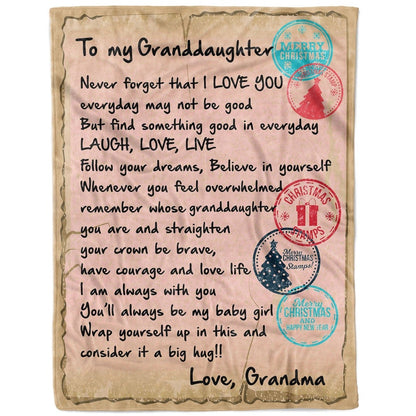 To my Granddaughter
Never forget that I LOVE YOU
everyday may not be good
But find something good in everyday
LAUGH, LOVE, LIVE
Follow your dreams, Believe in yourself
Whenever you feel overwhelmed
remember whose granddaughter
you are and straighten
your crown be brave,
have courage and love life
I am always with you
You'll always be my baby girl
Wrap yourself up in this and
consider it a big hug!!
Love, Grandma
MERRY
CHRISTMAS
CHRISTMAS
STAMPS
Merry
CHRISTMAS
Stamps!
Merry
CHRISTMAS
AND
HAPPY NEW YEAR